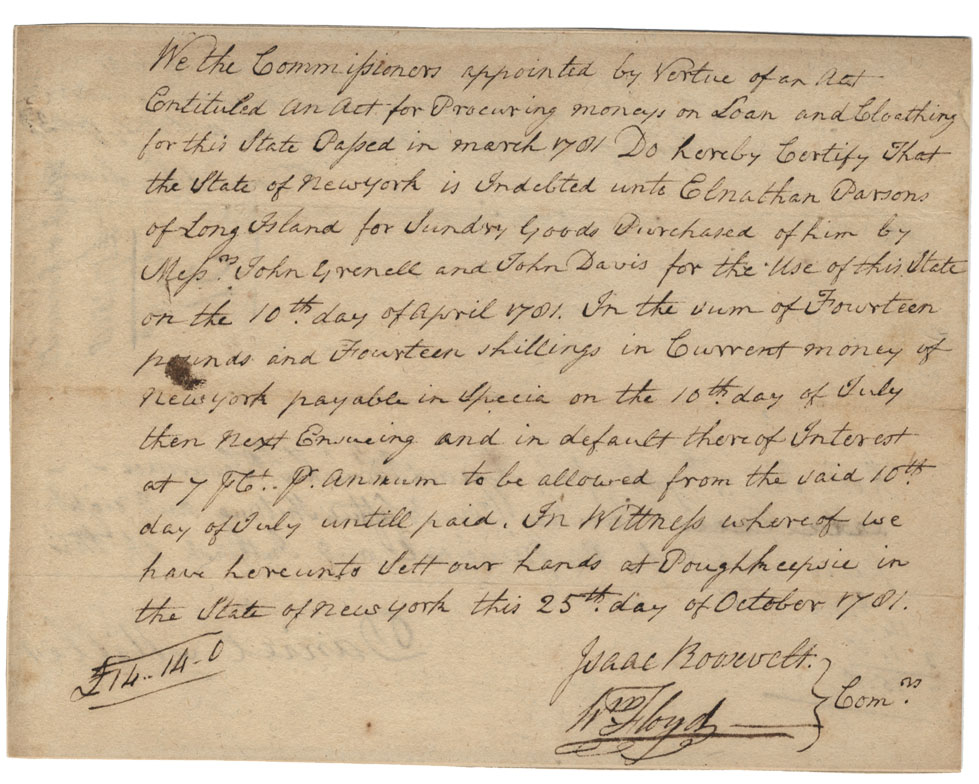 We the Commissioners appointed by Vertue of an Act
Entituled An Act for Procuring moneys on Loan and Cloathing
for this State Passed in march 1781 Do hereby Certify That
the State of Newyork is Indebted unto Elnathan Parsons
of Long Island for Sundry Goods Purchased of him by
Messrs John Grenell and John Davis for the Use of this State
on the 10th day of April 1781. In the sum of Fourteen
pounds and Fourteen shillings in Current money of
Newyork payable in Specia on the 10th day of July
then Next Ensueing and in default thereof Interest
at 7 PCt. Pr. Annum to be allowed from the said 10th
day of July untill paid. In Wittness whereof we
have hereunto Sett our hands at Poughkeepsie in
the State of Newyork this 25th day of October 1781.
£14..14-0
Isaac Roosevelt.
Wm Floyd
Comrs
Daniel